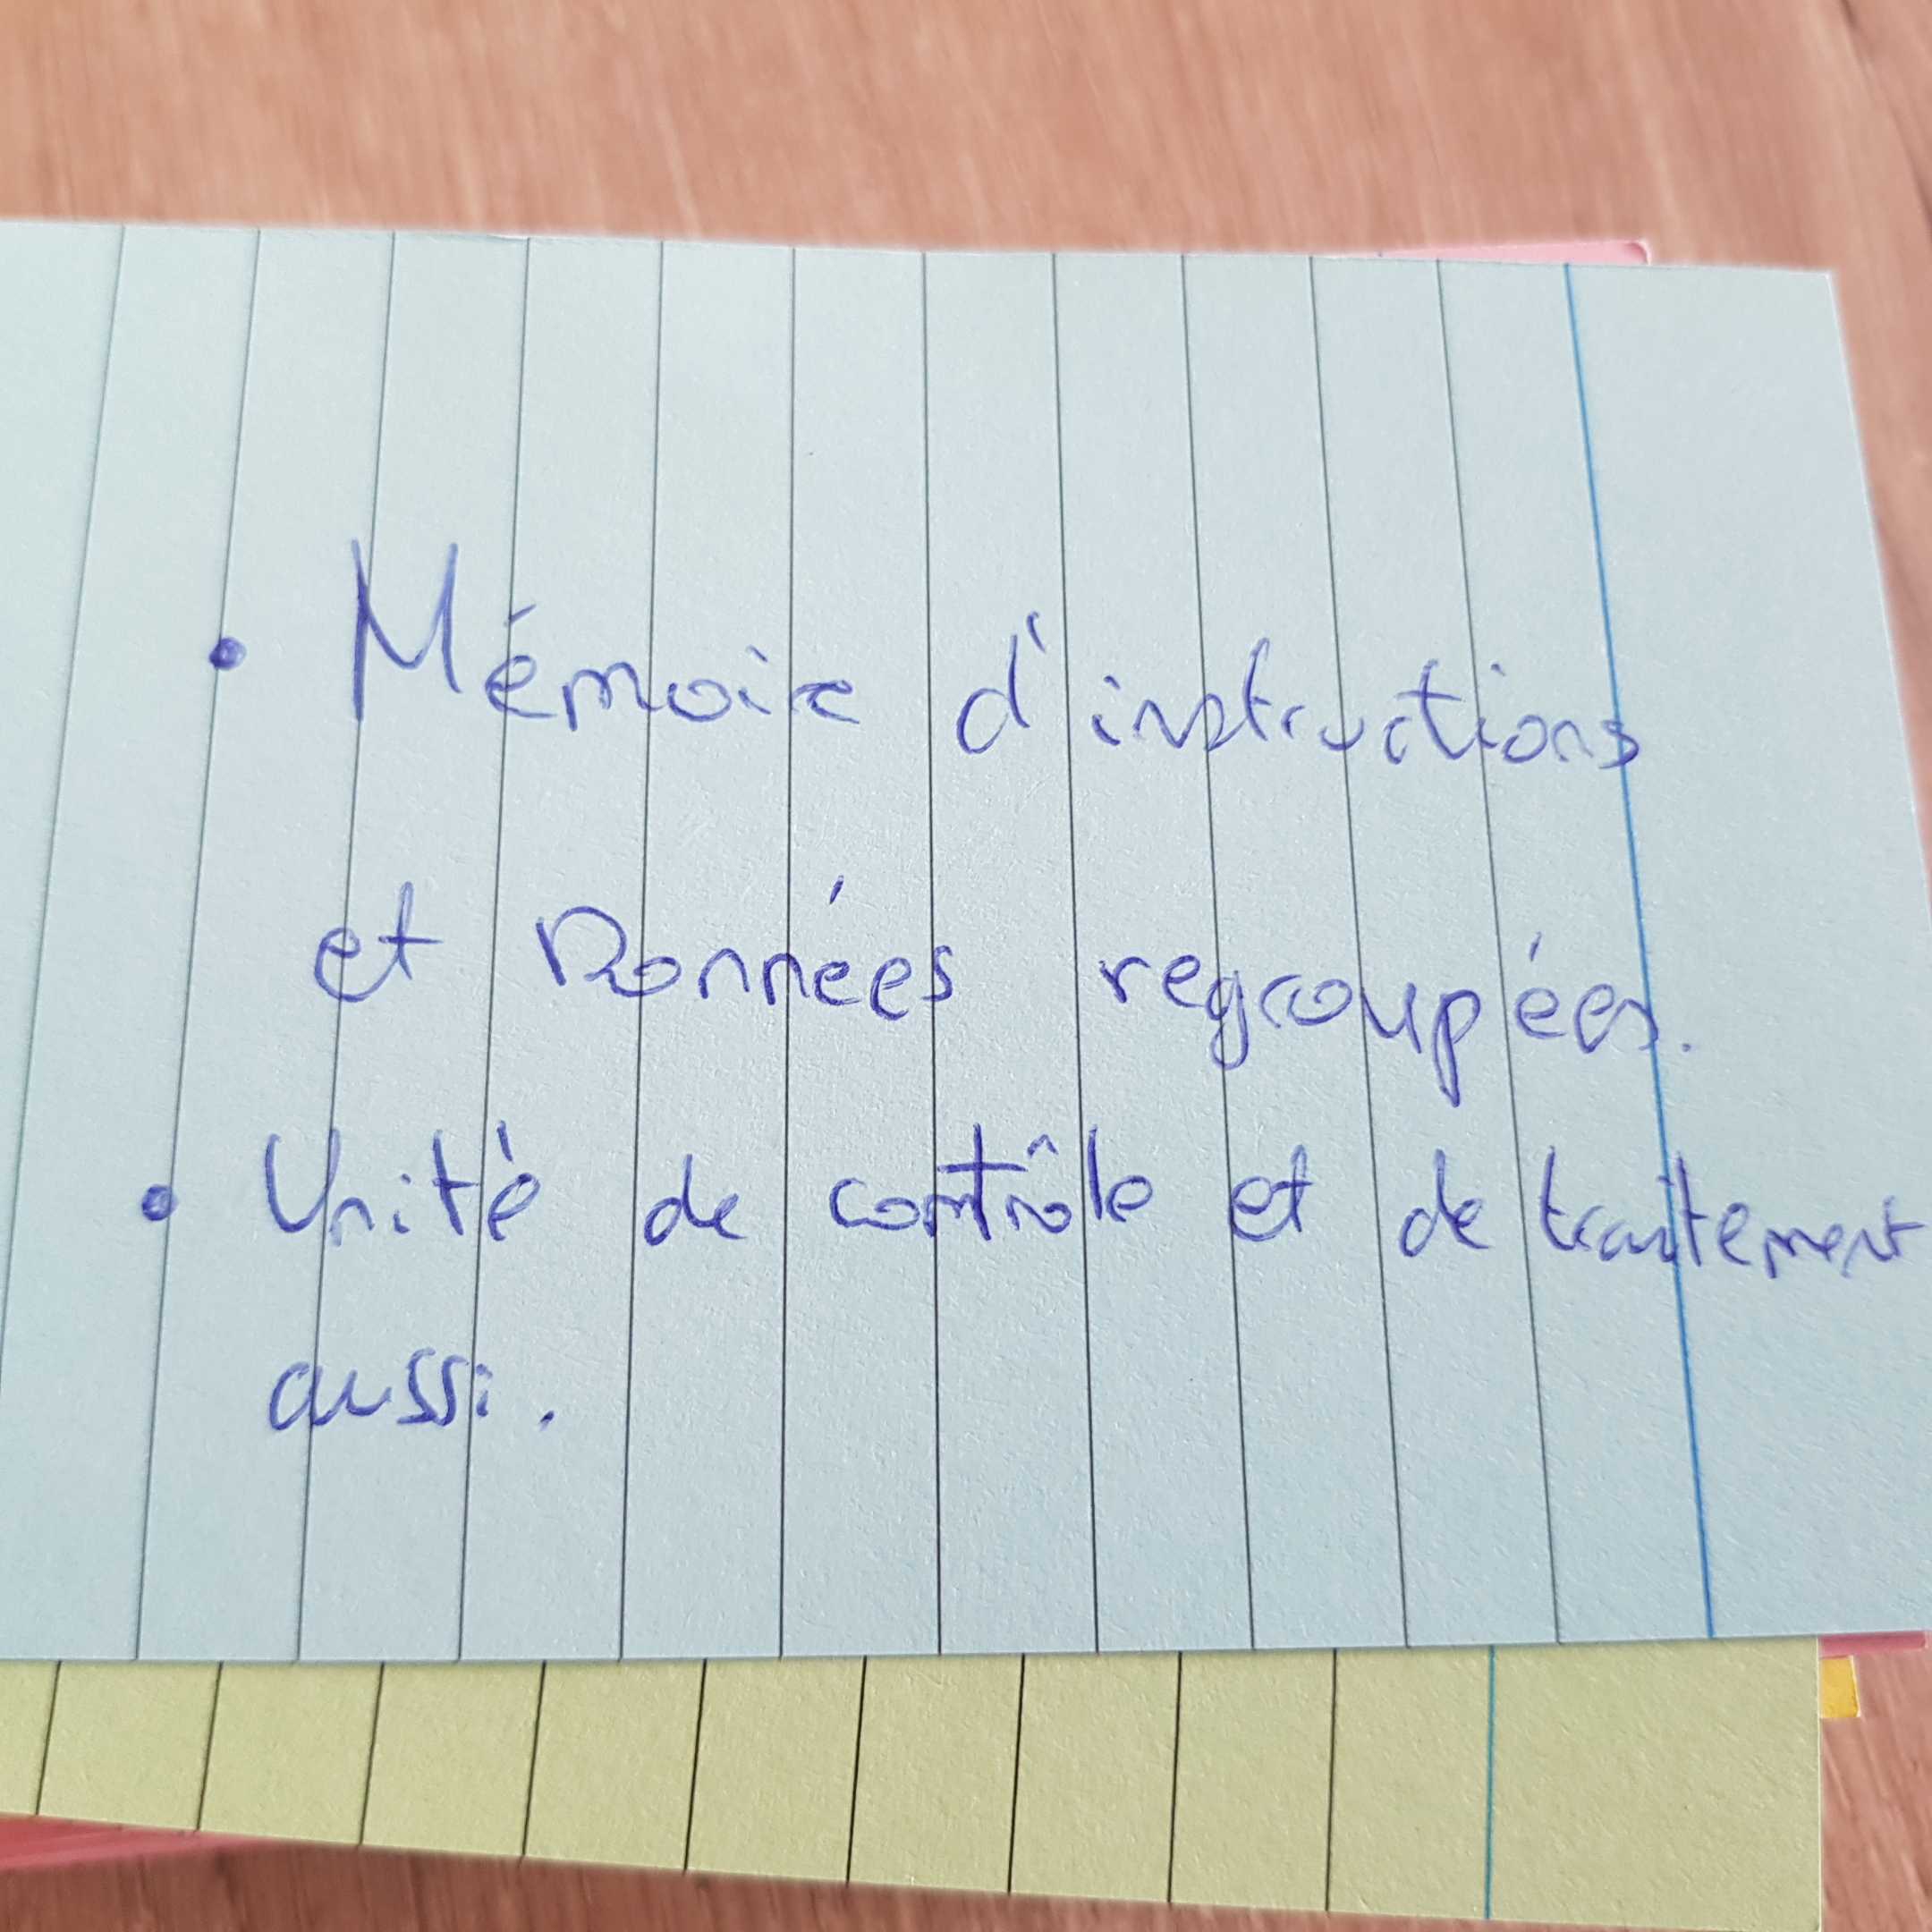 • Mémoire d'instructions
et Données regroupées.
• Unité de contrôle et de traitement
aussi.